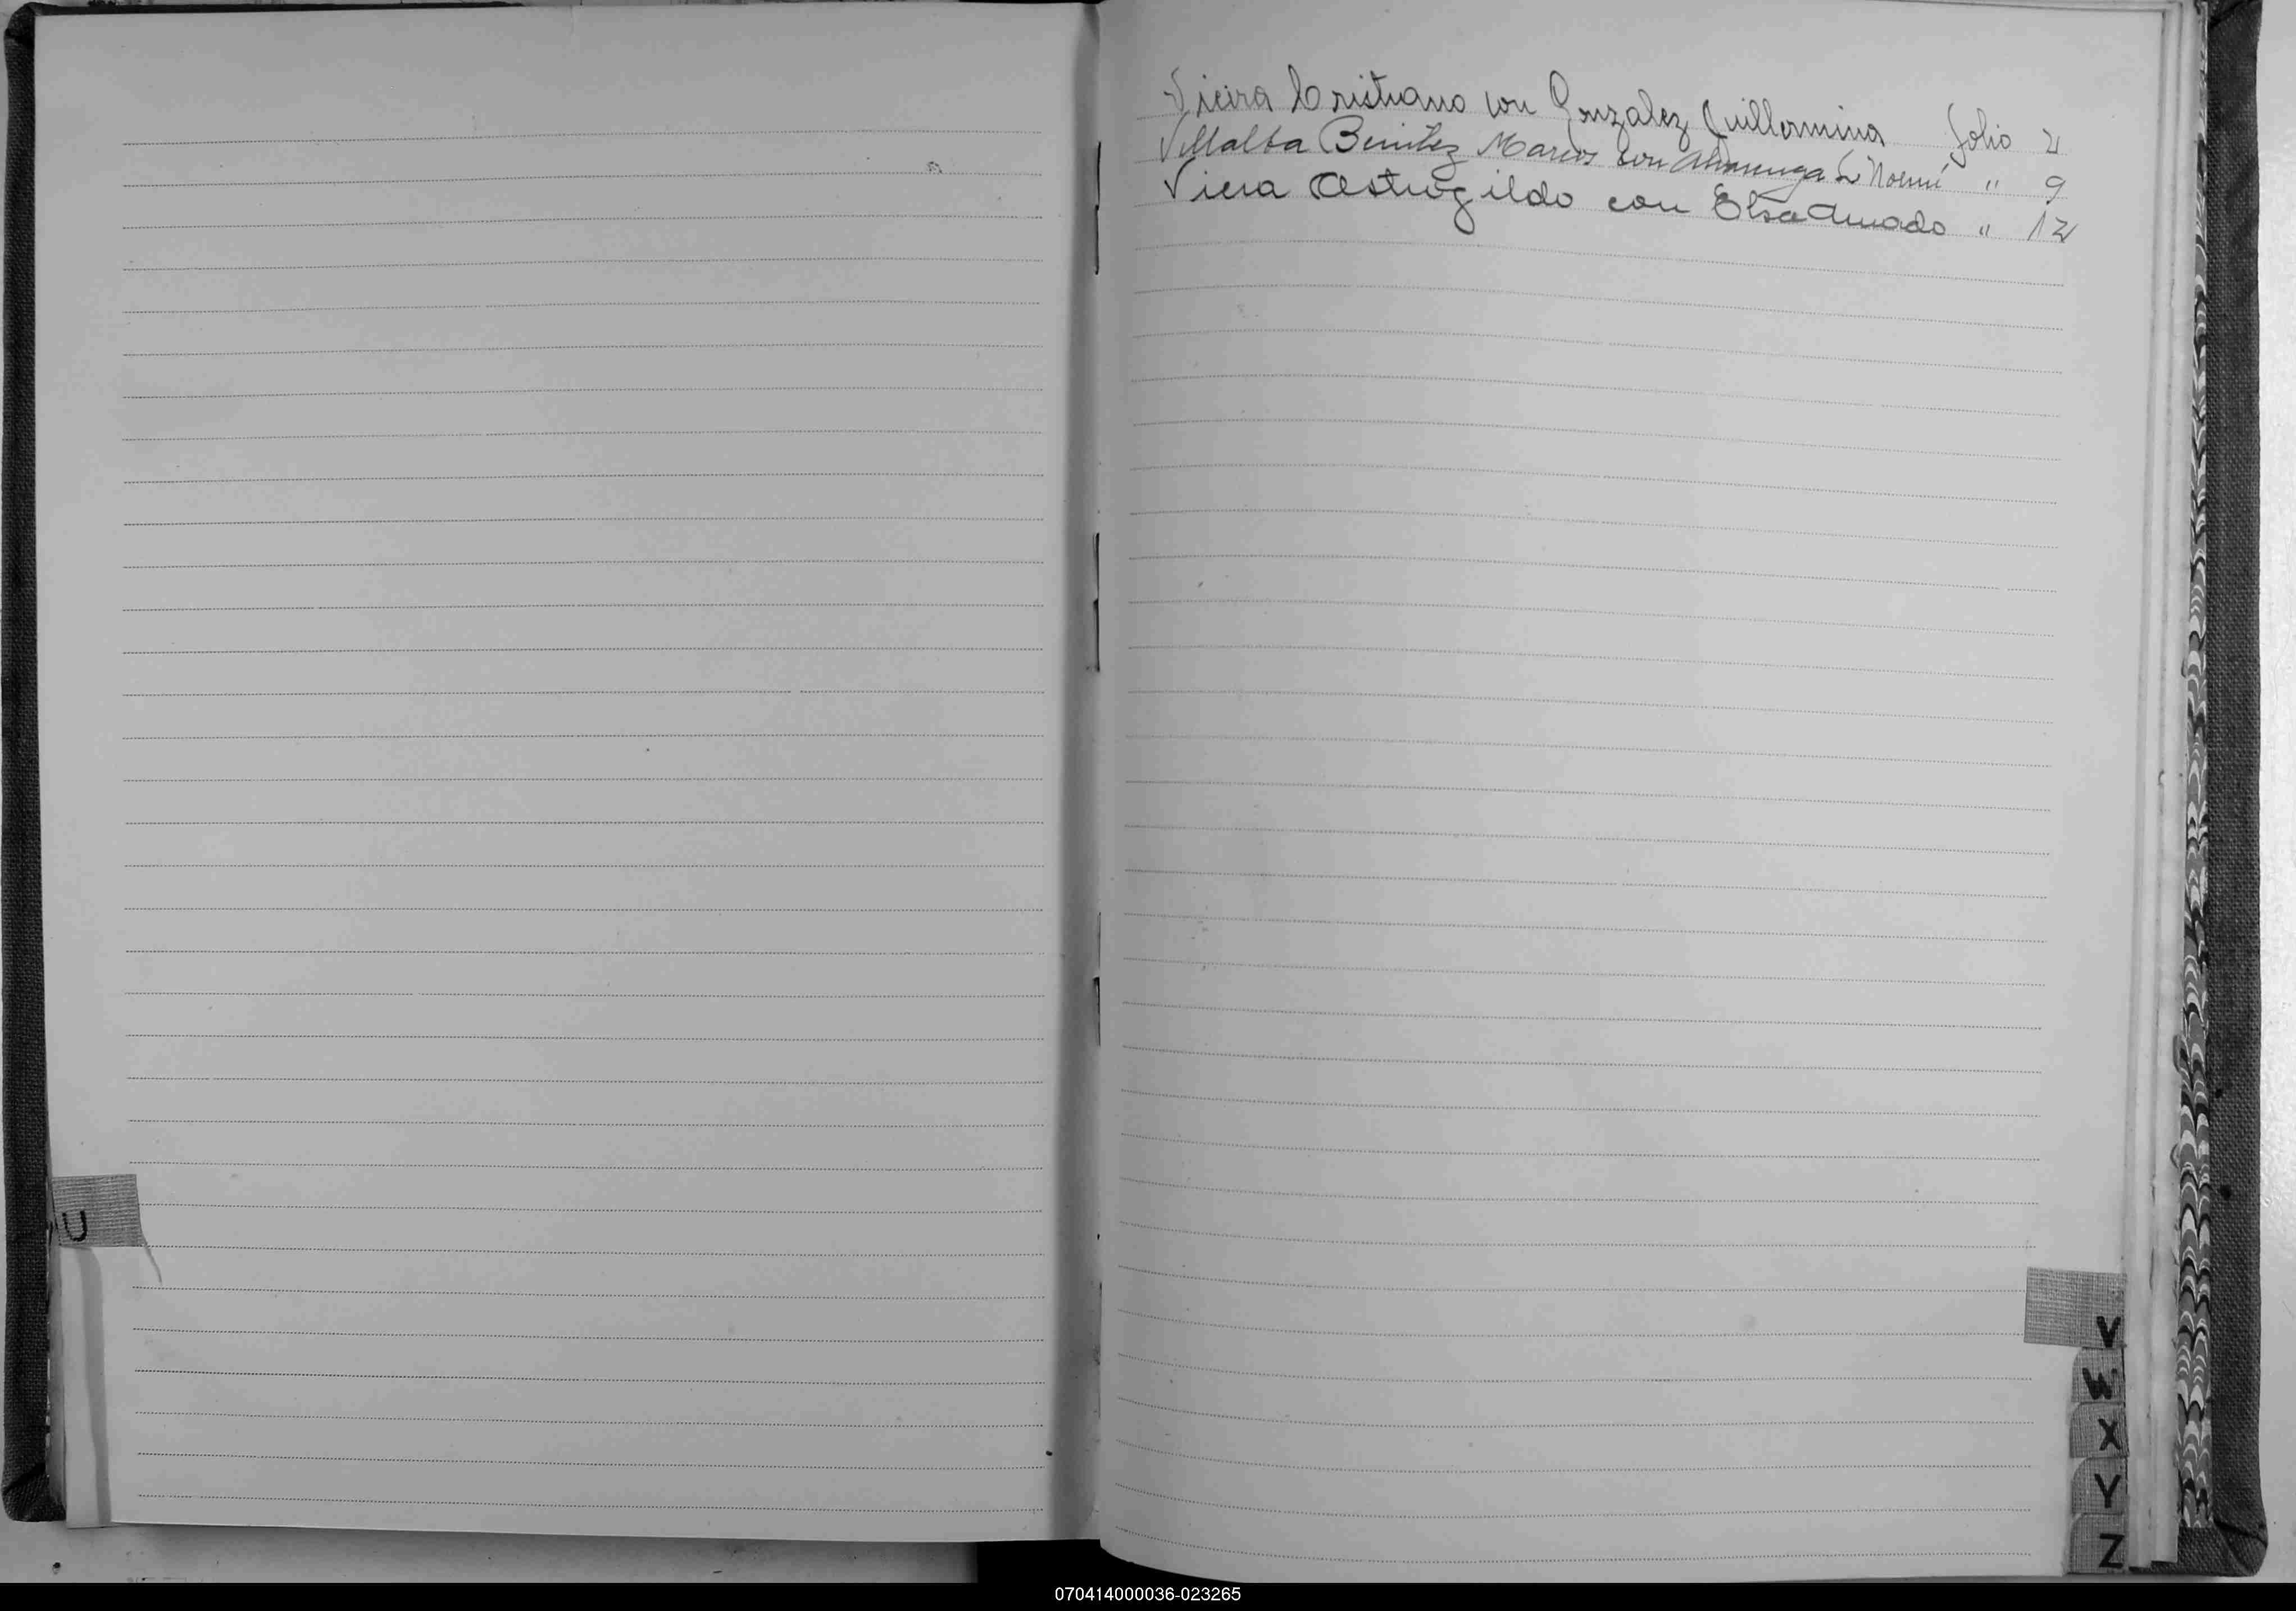 Vieira Cristiano con Gonzalez Guillermina folio 2
Villalba Benitez Marcos con L. Noemí " 9
Viera Astrogildo con Elsa Amado " 12
U
V
W
X
Y
Z
070414000036-023265